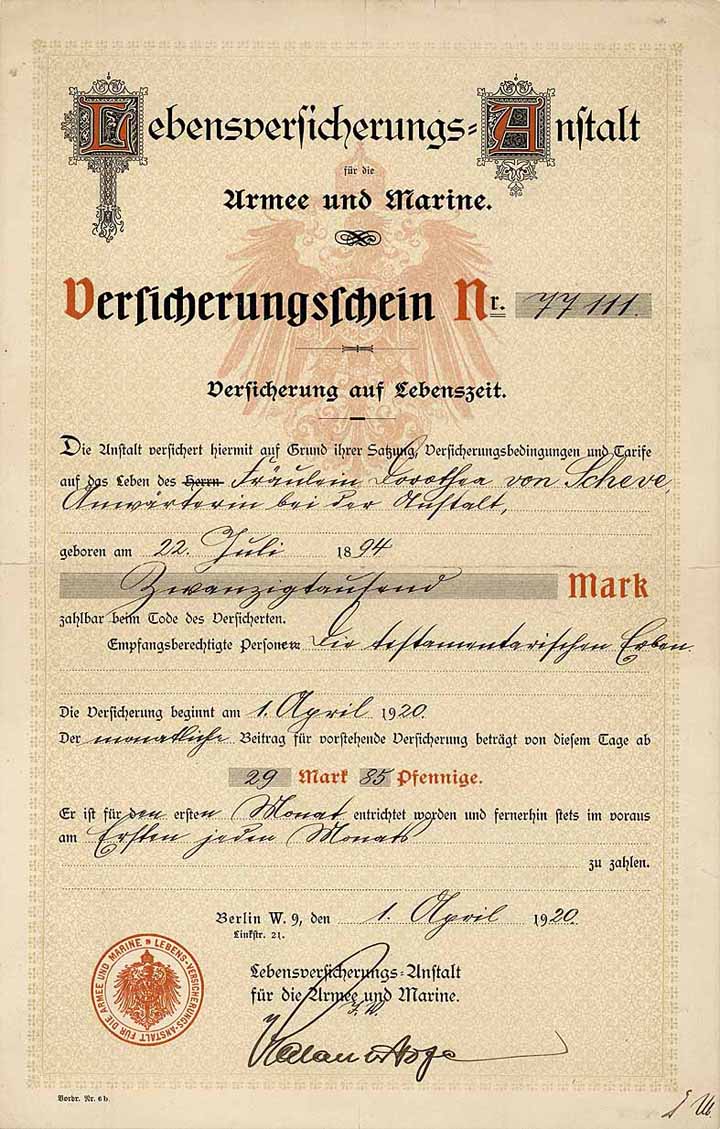 Lebensversicherungs-Anstalt
für die
Armee und Marine.
Versicherungsschein Nr. 77111.
Versicherung auf Lebenszeit.
Die Anstalt versichert hiermit auf Grund ihrer Satzung, Versicherungsbedingungen und Tarife
auf das Leben des Herrn Fräulein Dorothea von Scheve,
Anwärterin bei der Anstalt,
geboren am 22. Juli 1894
Zwanzigtausend Mark
zahlbar beim Tode des Versicherten.
Empfangsberechtigte Personen: Die testamentarischen Erben.
Die Versicherung beginnt am 1. April 1920.
Der monatliche Beitrag für vorstehende Versicherung beträgt von diesem Tage ab
29 Mark 85 Pfennige.
Er ist für den ersten Monat entrichtet worden und fernerhin stets im voraus
am Ersten jeden Monats
zu zahlen.
Berlin W. 9, den 1. April 1920.
Linkstr. 21.
LEBENS-VERSICHERUNGS-ANSTALT FÜR DIE ARMEE UND MARINE
Lebensversicherungs-Anstalt
für die Armee und Marine.
Vordr. Nr. 6b.